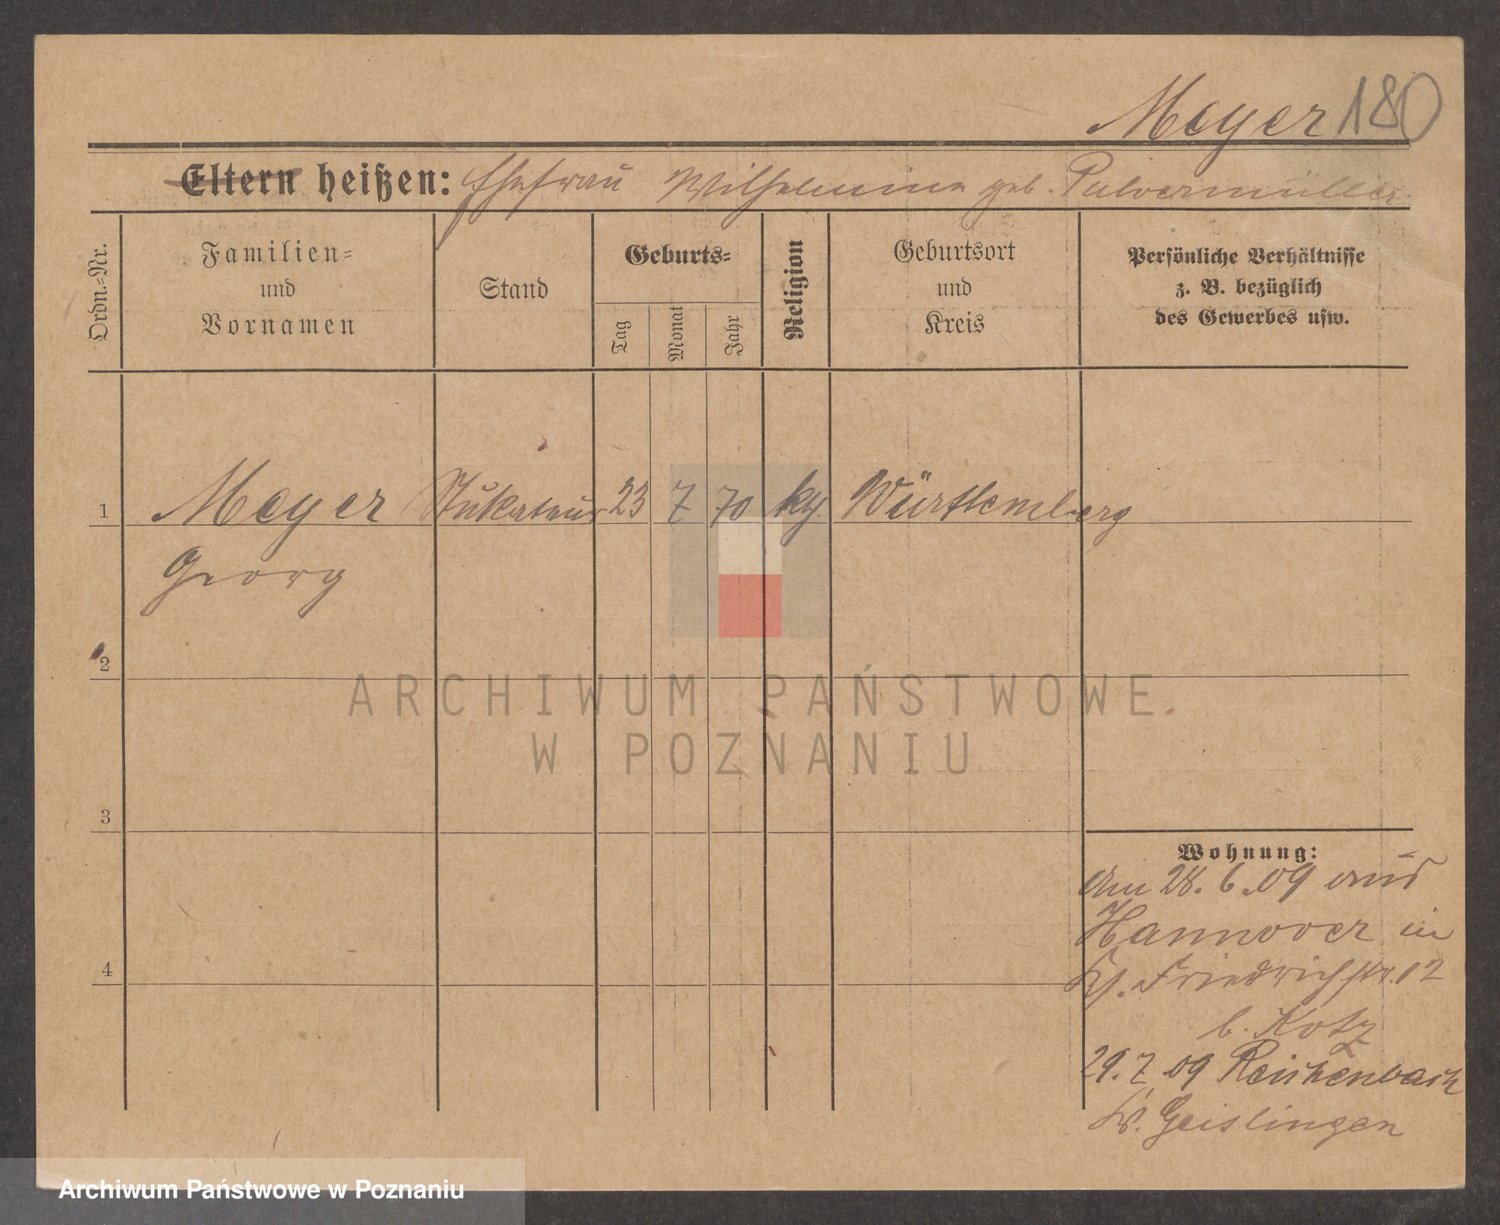 Meyer 180
Eltern heißen: Ehefrau Wilhelmine geb. Pulvermüller
Ordn.-Nr.
Familien-
und
Vornamen
Stand
Geburts-
Tag
Monat
Jahr
Religion
Geburtsort
und
Kreis
Persönliche Verhältnisse
z. B. bezüglich
des Gewerbes usw.
1 Meyer Stukateur 23 7 70 kth. Württemberg
Georg
2
ARCHIWUM PAŃSTWOWE
W POZNANIU
3
Wohnung:
Am 28.6.09 aus
Hannover in
Friedrichstr. 12
b. Kotz
4
29.7.09 Reichenbach
Kr. Geislingen
Archiwum Państwowe w Poznaniu